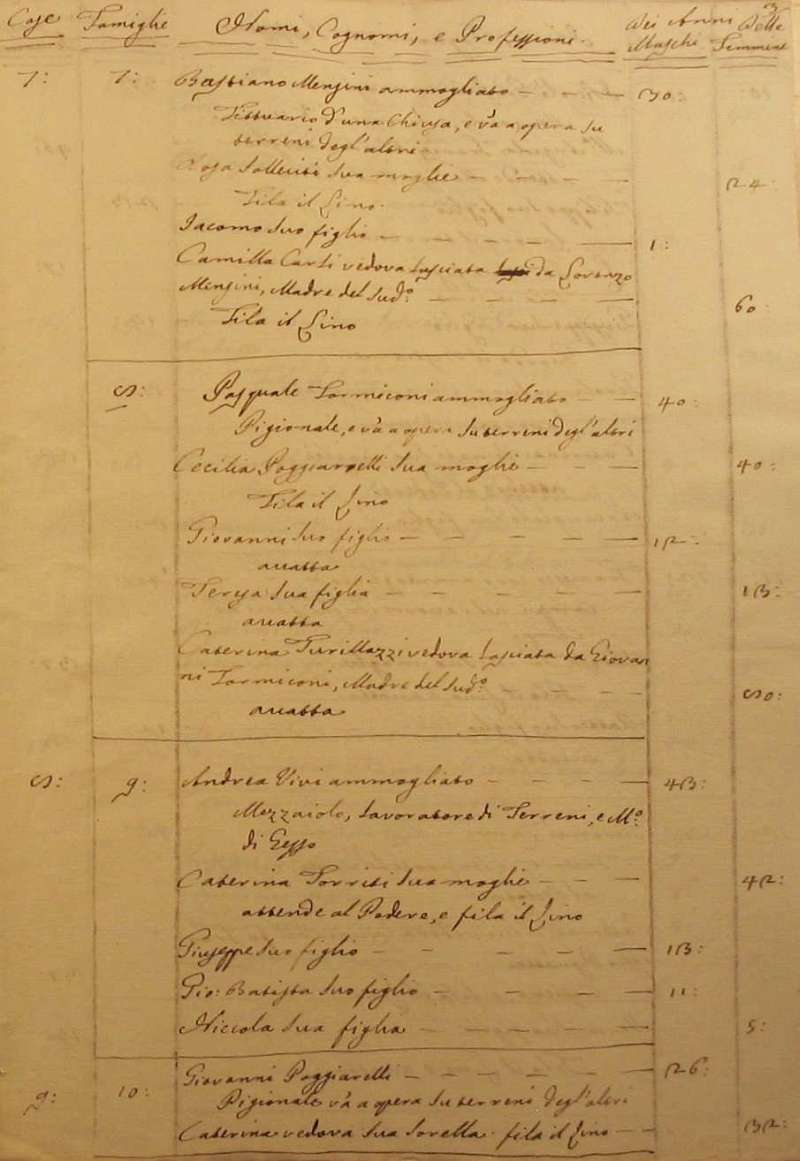 Case Famiglie Nomi, Cognomi, e Professioni Dei Maschi Anni Delle Femmine
7: 7: Bastiano Mensini ammogliato 30:
Fittuario d'una Chiusa, e và a opera su
terreni degl'altri
Rosa Solleciti sua moglie 24:
Fila il Lino
Iacomo suo figlio 1:
Camilla Carli vedova lasciata da Lorenzo
Mensini, Madre del sud.º 60:
Fila il Lino
8: Pasquale Formiconi ammogliato 40:
Pigionale, e và a opera su terreni degl'altri
Cecilia Poggiarelli sua moglie 40:
Fila il Lino
Giovanni suo figlio 12:
accatta
Teresa sua figlia 13:
accatta
Caterina Turillazzi vedova lasciata da Giovan
ni Formiconi, Madre del sud.º 80:
accatta
8: 9: Andrea Vivi ammogliato 43:
Mezzaiolo, lavoratore di Terreni, e M.º
di Gesso
Caterina Torriti sua moglie 42:
attende al Podere, e fila il Lino
Giuseppe suo figlio 13:
Gio: Batista suo figlio 11:
Niccola sua figlia 5:
9: 10: Giovanni Poggiarelli 26:
Pigionale và a opera su terreni degl'altri
Caterina vedova sua sorella fila il Lino 32: